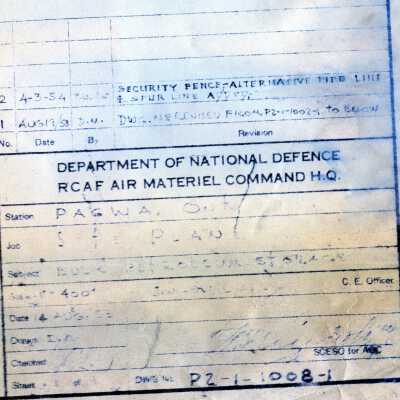 2 4-3-54 SECURITY FENCE-ALTERNATIVE PIPE LINE
& SPUR LINE
1 AUG 19/53 D.N. DWG. Nº REVISED FROM P2-1-1002-1 TO BELOW
No. Date By Revision
DEPARTMENT OF NATIONAL DEFENCE
RCAF AIR MATERIEL COMMAND H.Q.
Station PAGWA, ONT.
Job SITE PLAN
Subject BULK PETROLEUM STORAGE
C. E. Officer
Scale 1"=400'
Date AUG
Drawn
Checked
SCESO for AOC
Sheet of DWG No. P2-1-1008-1